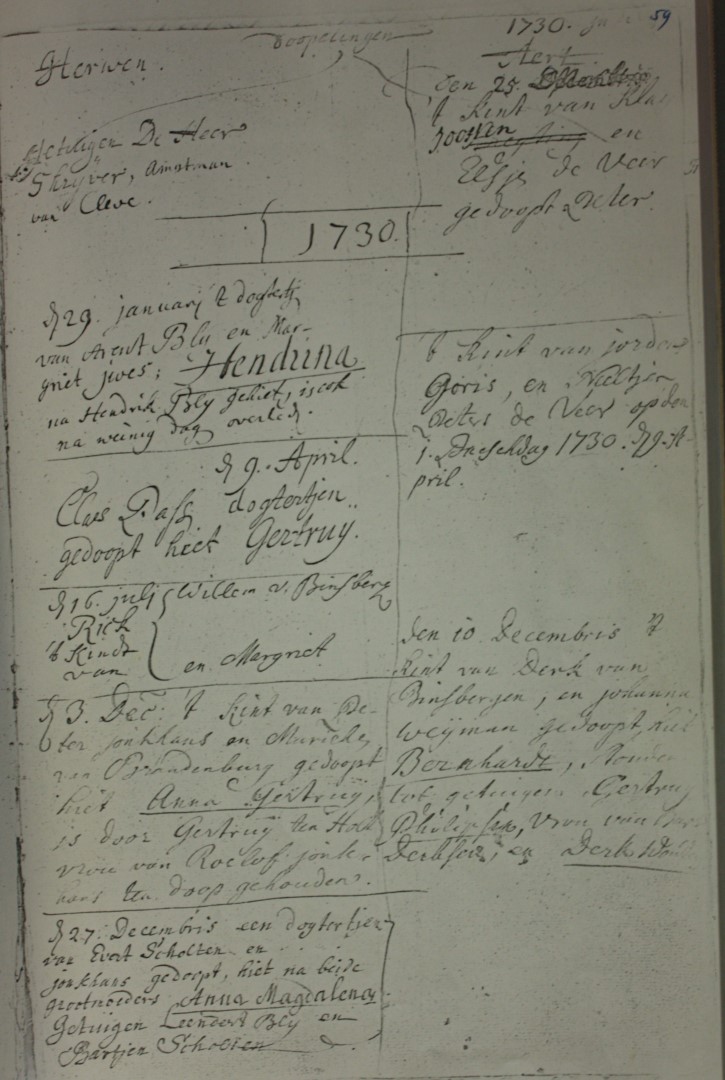 59
Doopelingen
Herwen.
De Heer
Shrijver, Amtman
van Cleve.
1730.
d 29. januarij 't dogtertj
van Arent Bly en Mar-
griet jwes; Hendrina
na Hendrik Bly gehiet, is ook
na weinig dag overled.
d 9. April.
Claes dogtertjen
gedoopt hiet Gertruy.
d 16. julij Willem v. Binsberg
Rick
't Kindt
van en Margriet
d 3. Dec: 't Kint van Pe-
ter jonkhans en Marieke
van Brandenburg gedoopt
hiet Anna Gertruij,
is door Gertruij ten Holt
vrou van Roelof jonk-
hans ten doop gehouden.
d 27. Decembris een dogtertjen
van Evert Scholten en
jonkhans gedoopt, hiet na beide
grootmoeders Anna Magdalena
Getuigen Leendert Bly en
Bartjen Scholten
1730.
Aert
den 25.
't Kint van Kla
joosten en
Elsje de Veer
gedoopt Peter.
't Kint van jorden
Goris, en Neeltjen
Peters de Veer op den
1. Paeschdag 1730. d 9. A-
pril.
den 10 Decembris 't
Kint van Derk van
Binsbergen, en johanna
Weyman gedoopt, hiet
Bernhardt,
tot getuigen Gertruy
Philipsen, vrou van
Derksen, en Derk